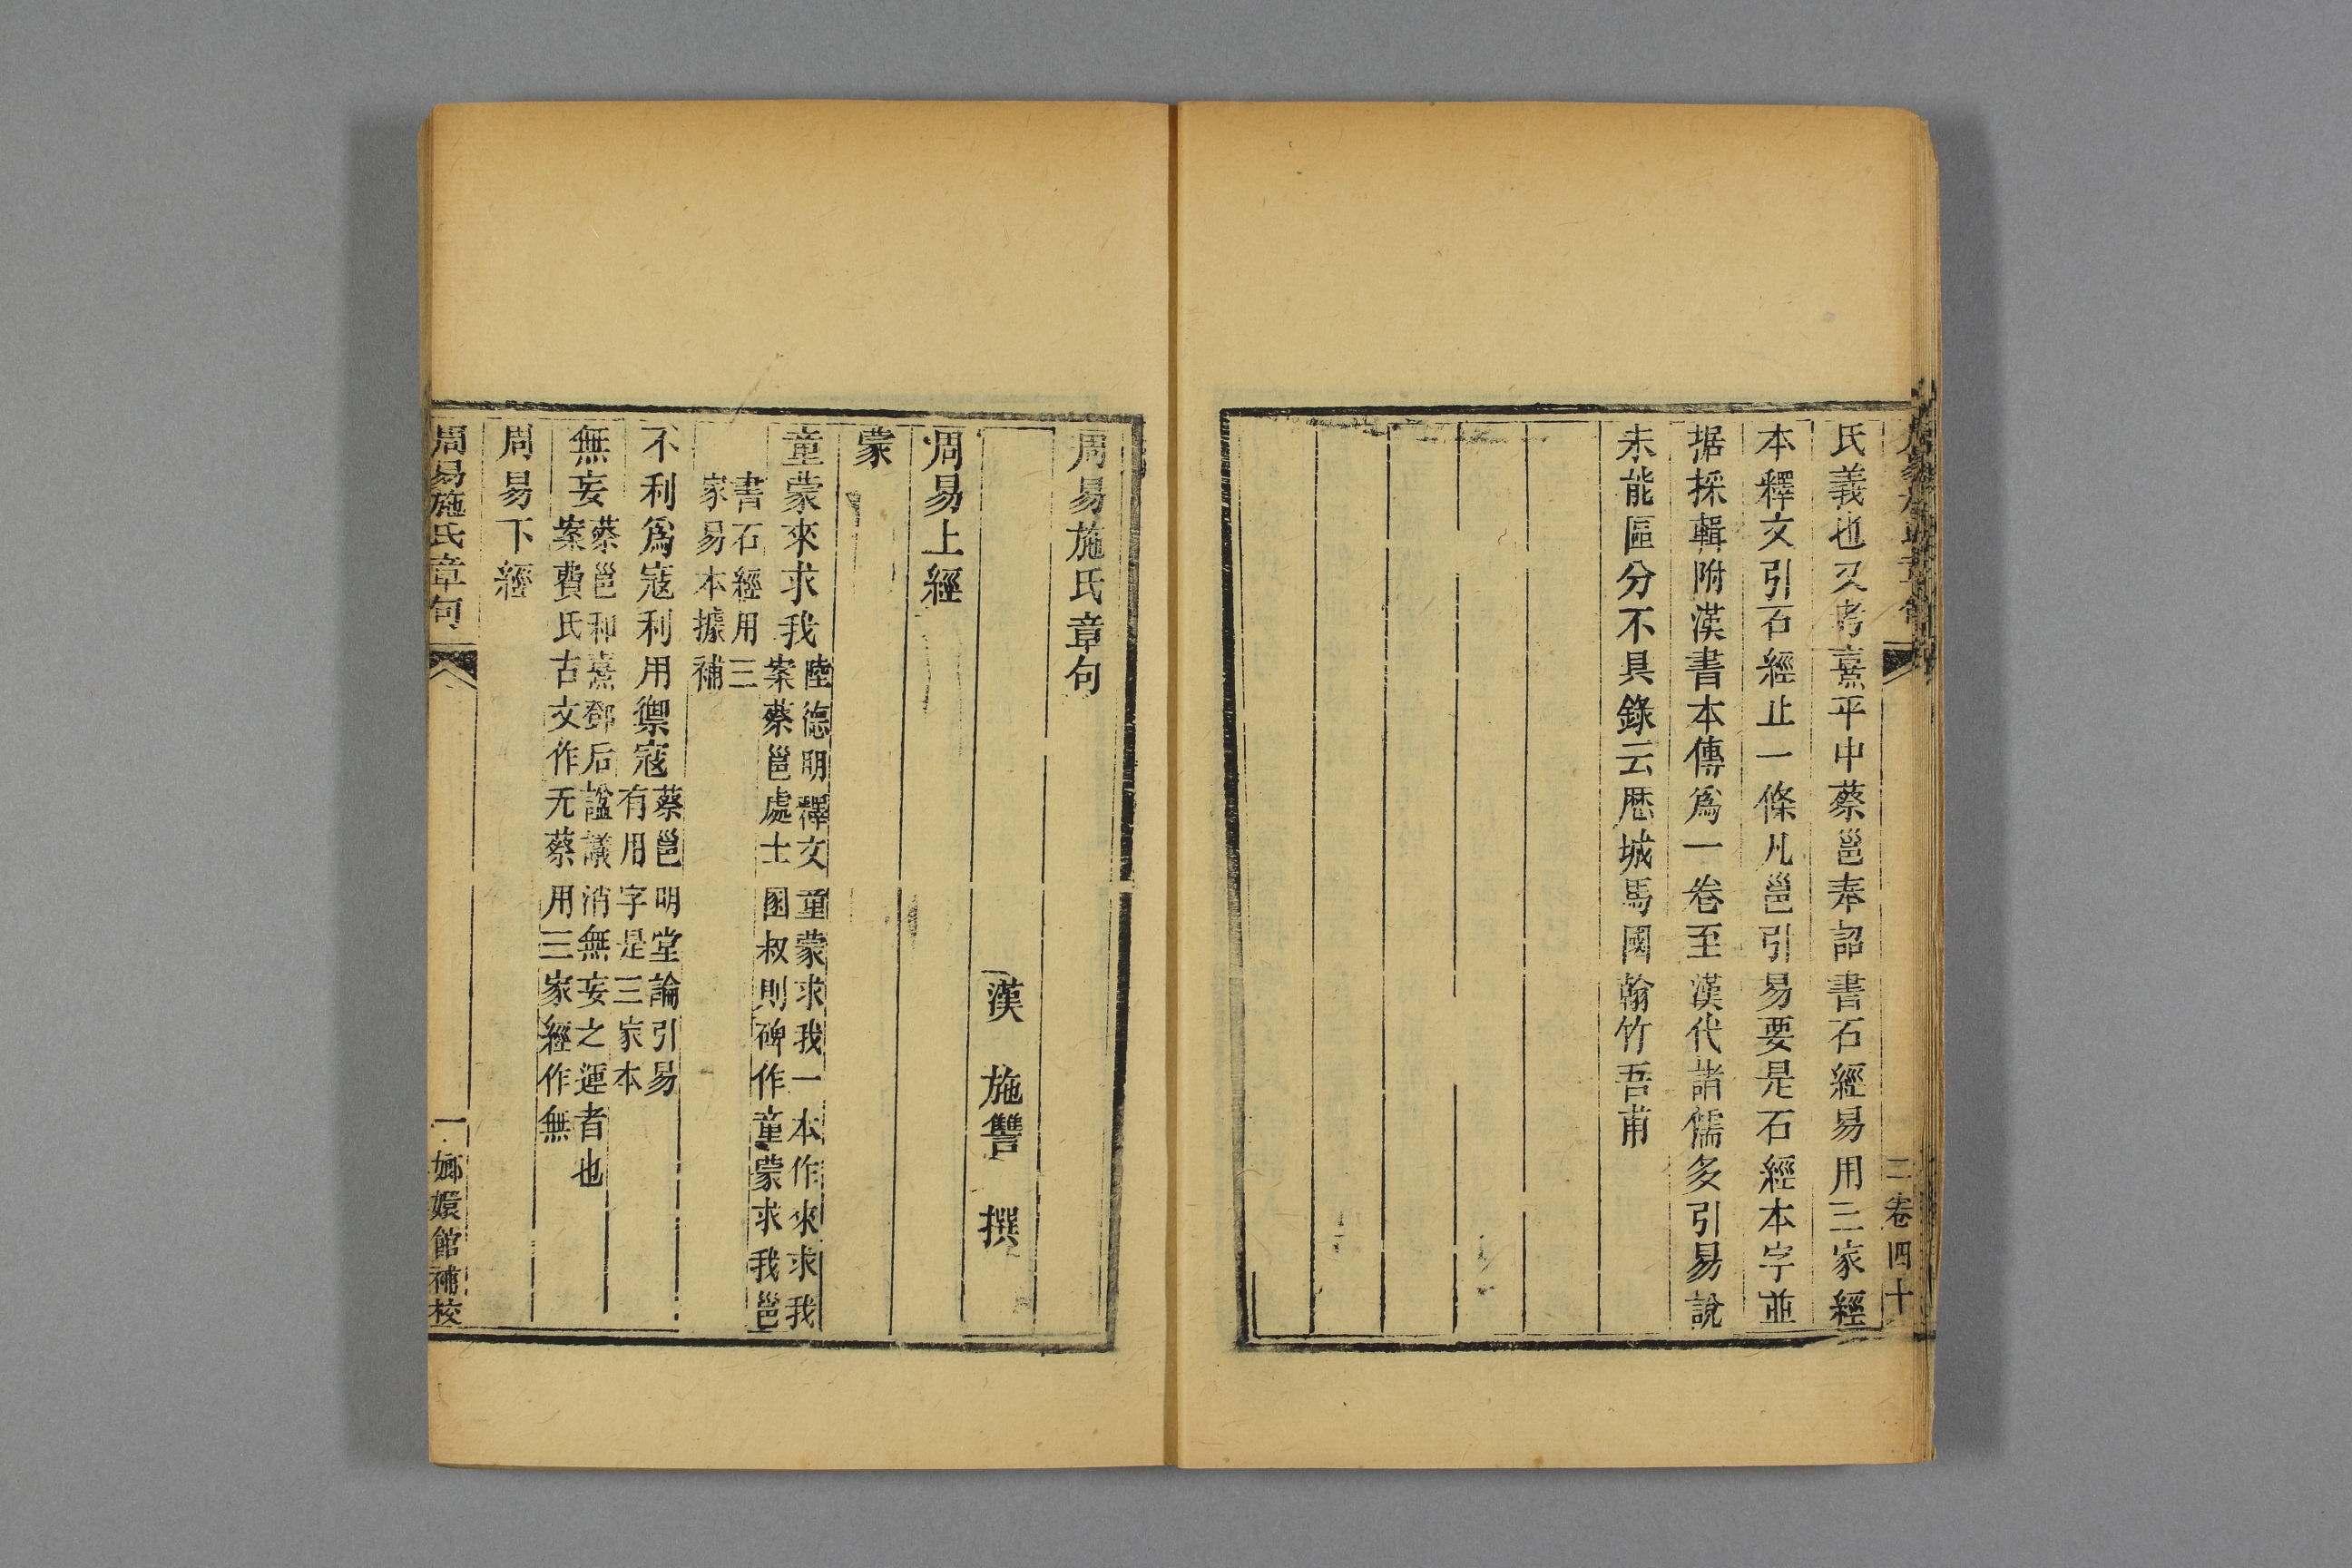 氏義也又考熹平中蔡邕奉詔書石經易用三家經
本釋文引石經止一條凡邕引易要是石經本字並
据採輯附漢書本傳爲一卷至漢代諸儒多引易說
未能區分不具錄云歷城馬國翰竹吾甫
二卷四十
周易施氏章句
漢 施讐 撰
周易上經
蒙
童蒙來求我 陸德明釋文童蒙求我一本作來求我
案蔡邕處士圂叔則碑作童蒙求我邕
書石經用三
家易本據補
不利爲寇利用禦寇 蔡邕明堂論引易
有用字是三家本
無妄 蔡邕和熹鄧后諡議消無妄之運者也
案費氏古文作无蔡用三家經作無
周易下經
周易施氏章句 一 嫏嬛館補校